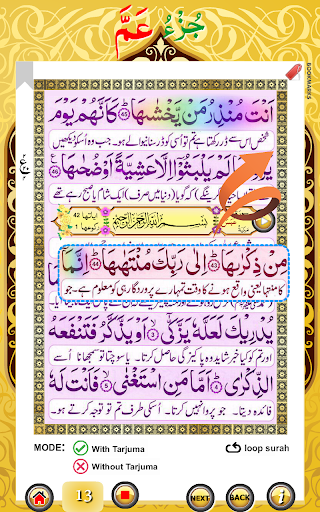 جُزْءُ عَمَّ
BOOKMARKS
اَنْتَ مُنْذِرُ مَنْ يَّخْشٰىهَا ﴿45﴾ كَاَنَّهُمْ يَوْمَ
شخص اس سے ڈر رکھتا ہے تم تو اُسی کو ڈر سنانیوالے ہو۔ جب وہ اُسکو دیکھیں
لَمْ يَلْبَثُوْٓا اِلَّا عَشِيَّةً اَوْ ضُحٰىهَا ﴿46﴾
(دنیا میں صرف) ایک شام یا صبح رہے تھے
اٰیاتها 42
بِسْمِ اللّٰهِ الرَّحْمٰنِ الرَّحِيْمِ
مِنْ ذِكْرٰىهَا ﴿43﴾ اِلٰى رَبِّكَ مُنْتَهٰىهَا ﴿44﴾ اِنَّمَآ
کا منتہا یعنی واقع ہونے کا وقت تمہارے پروردگار ہی کو معلوم ہے۔ جو
يُدْرِيْكَ لَعَلَّهٗ يَزَّكّٰٓى ﴿3﴾ اَوْ يَذَّكَّرُ فَتَنْفَعَهُ
اور تم کو کیا خبر شاید وہ پاکیزگی حاصل کرتا۔ یا سوچتا تو سمجھانا اُسے
الذِّكْرٰى ﴿4﴾ اَمَّا مَنِ اسْتَغْنٰى ﴿5﴾ فَاَنْتَ لَهٗ
فائدہ دیتا۔ جو پروا نہیں کرتا۔ اُسکی طرف تو تم توجہ کرتے ہو۔
MODE: With Tarjuma
loop surah
Without Tarjuma
13
NEXT
BACK
i